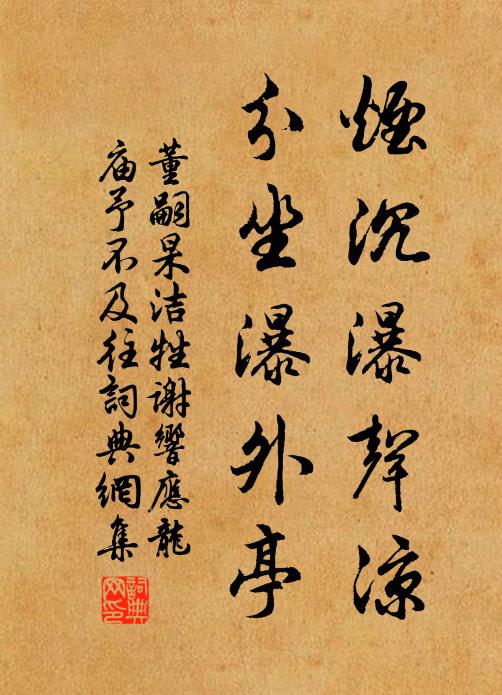 煙沉瀑聲涼
分坐瀑外亭
董嗣杲洁牲谢響應龍
庙予不及往詞典網集
詞典网印